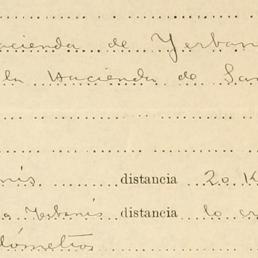 acienda de Yerban
la Hacienda de San
nís distancia 20 K
a Yerbanís distancia lo cr
lómetros